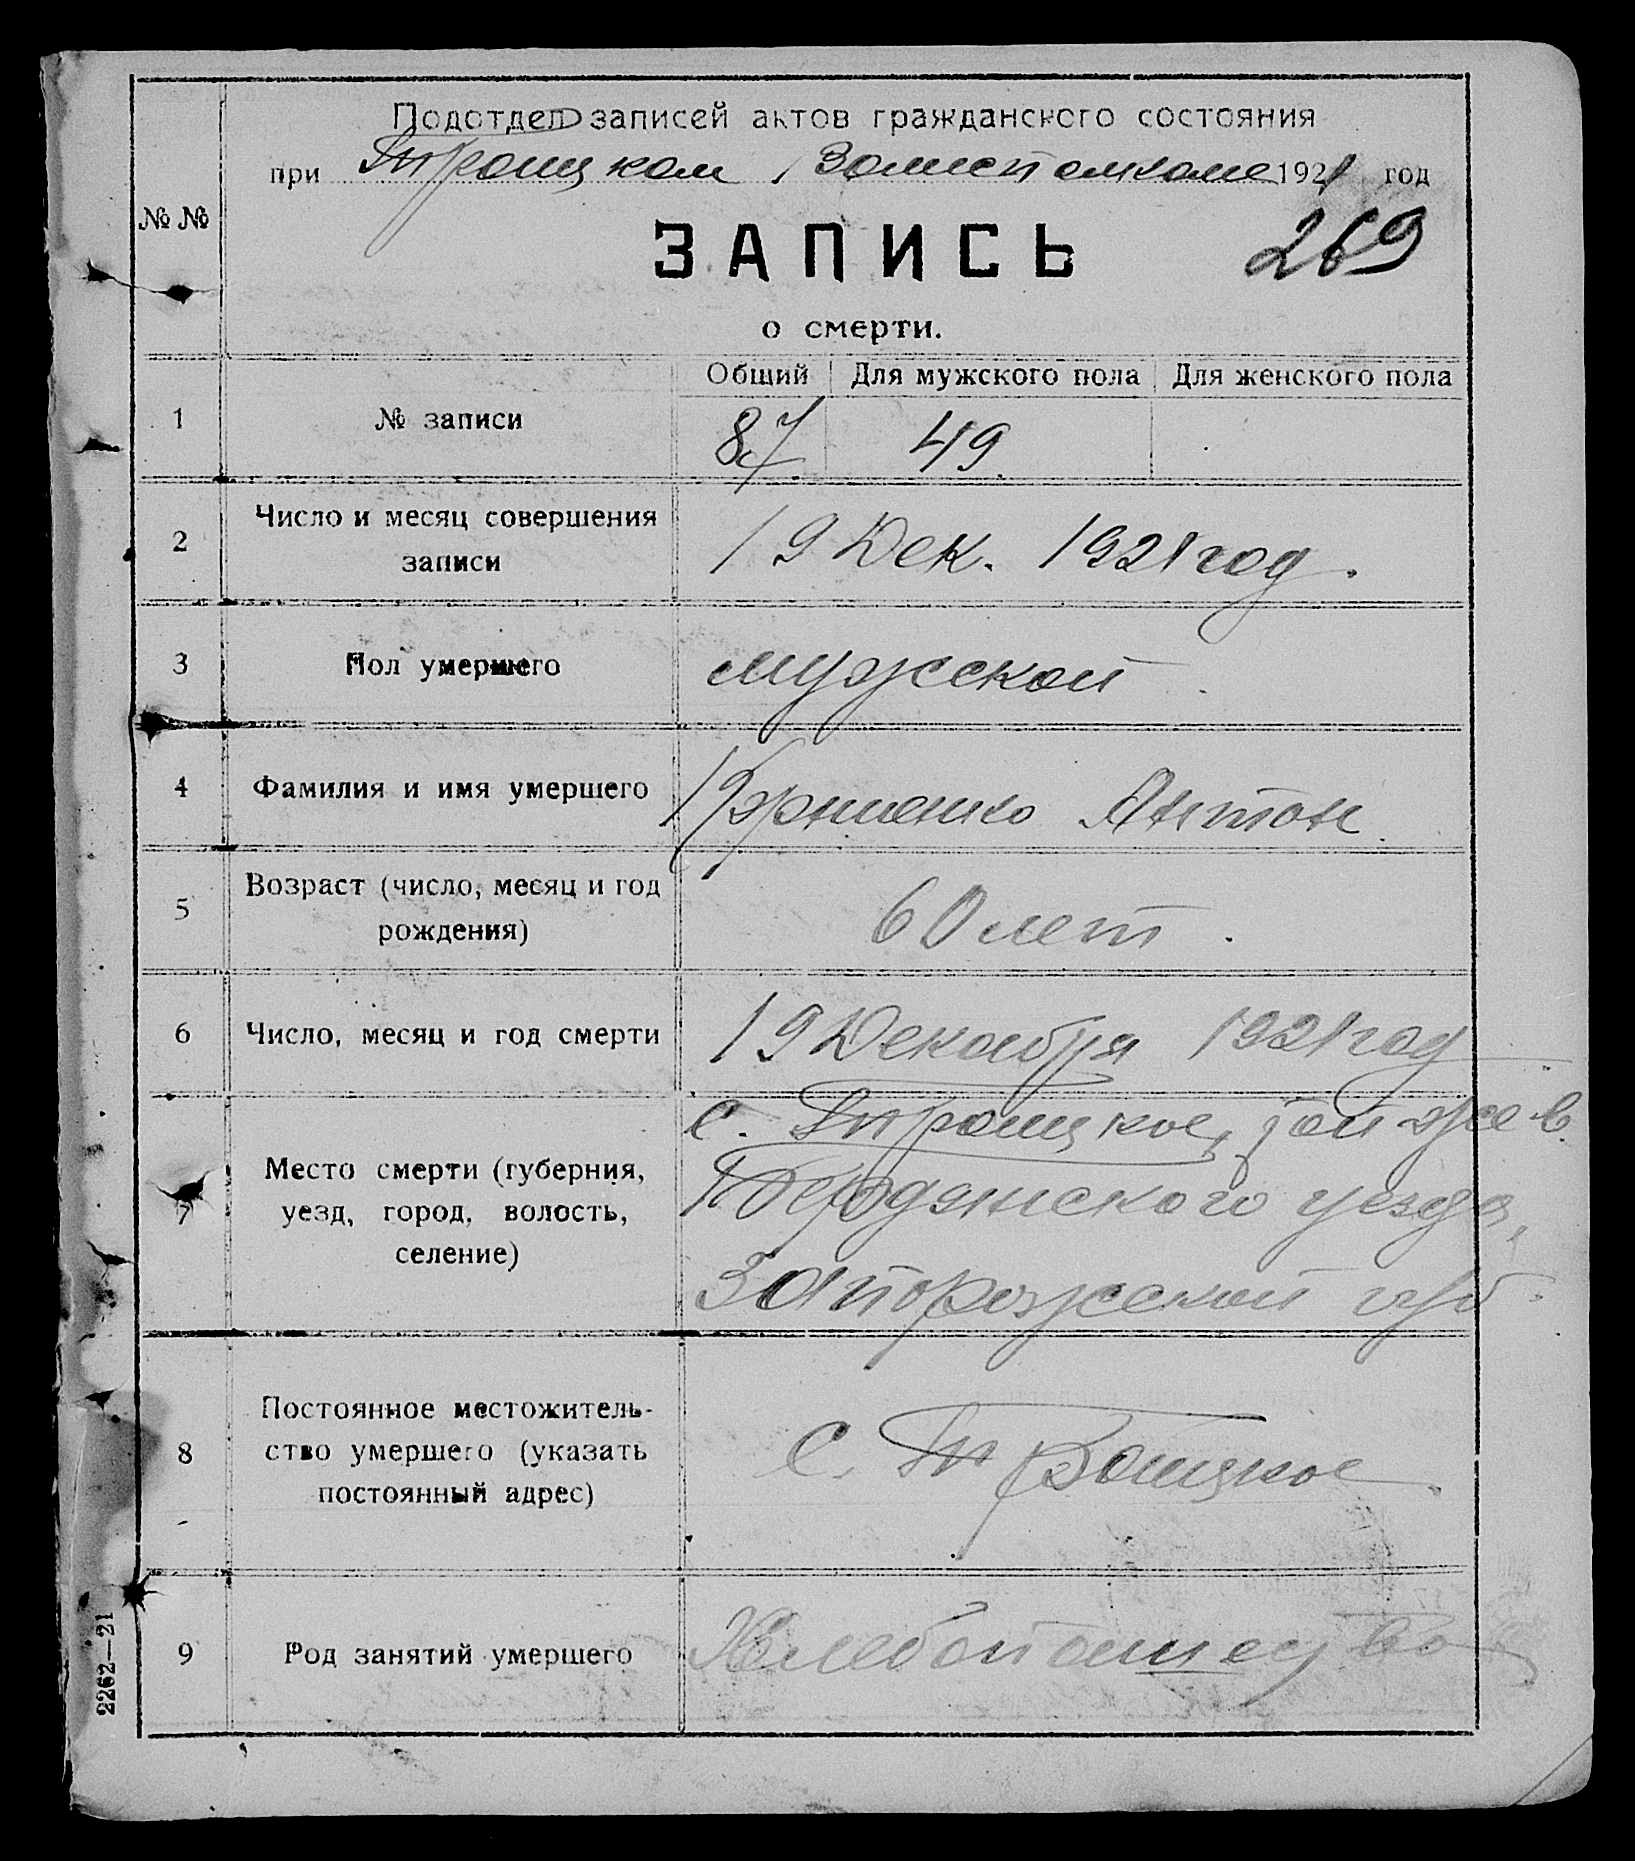 Подотдел записей актов гражданского состояния
при Троицком Волисполкоме 1921 год
№ №
ЗАПИСЬ 269
о смерти.
Общий Для мужского пола Для женского пола
1 № записи 87 49
2 Число и месяц совершения
записи
19 Дек. 1921 год.
3 Пол умершего мужской
4 Фамилия и имя умершего Антон
5 Возраст (число, месяц и год
рождения)
60 лет.
6 Число, месяц и год смерти 19 Декабря 1921 год
7 Место смерти (губерния,
уезд, город, волость,
селение)
с. Троицкое, той же в.
Бердянского уезда,
Запорожской губ.
8 Постоянное местожитель-
ство умершего (указать
постоянный адрес)
С. Троицкое
9 Род занятий умершего Хлебопашество
2262—21